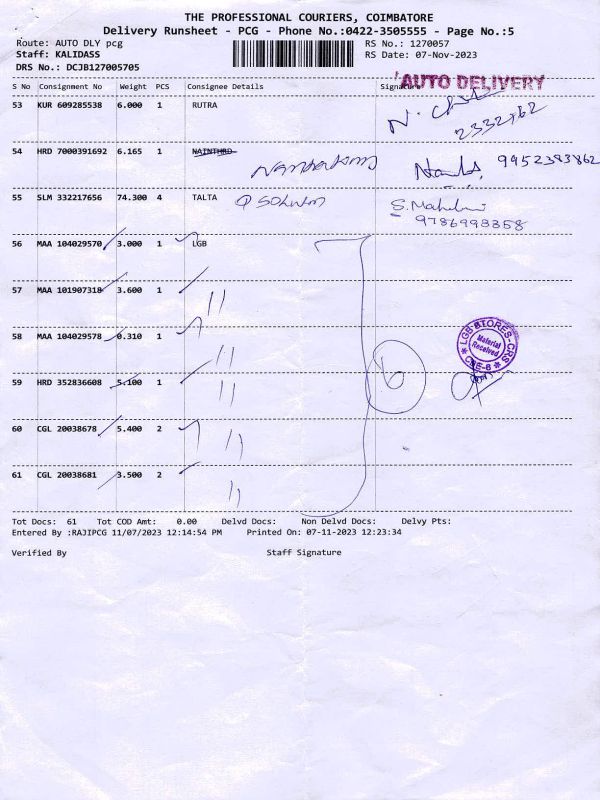 THE PROFESSIONAL COURIERS, COIMBATORE
Delivery Runsheet - PCG - Phone No.:0422-3505555 - Page No.:5
Route: AUTO DLY pcg RS No.: 1270057
Staff: KALIDASS RS Date: 07-Nov-2023
DRS No.: DCJB127005705
AUTO DELIVERY
S No Consignment No Weight PCS Consignee Details Signature
53 KUR 609285538 6.000 1 RUTRA
54 HRD 7000391692 6.165 1 NAINTHRD 9952383862
55 SLM 332217656 74.300 4 TALTA
9786998358
56 MAA 104029570 3.000 1 LGB
57 MAA 101907318 3.600 1 11
58 MAA 104029578 0.310 1 11
LGB STORES-CRS Material Received CBE-6
59 HRD 352836608 5.100 1 11 6
60 CGL 20038678 5.400 2 11
61 CGL 20038681 3.500 2 11
Tot Docs: 61 Tot COD Amt: 0.00 Delvd Docs: Non Delvd Docs: Delvy Pts:
Entered By :RAJIPCG 11/07/2023 12:14:54 PM Printed On: 07-11-2023 12:23:34
Verified By Staff Signature